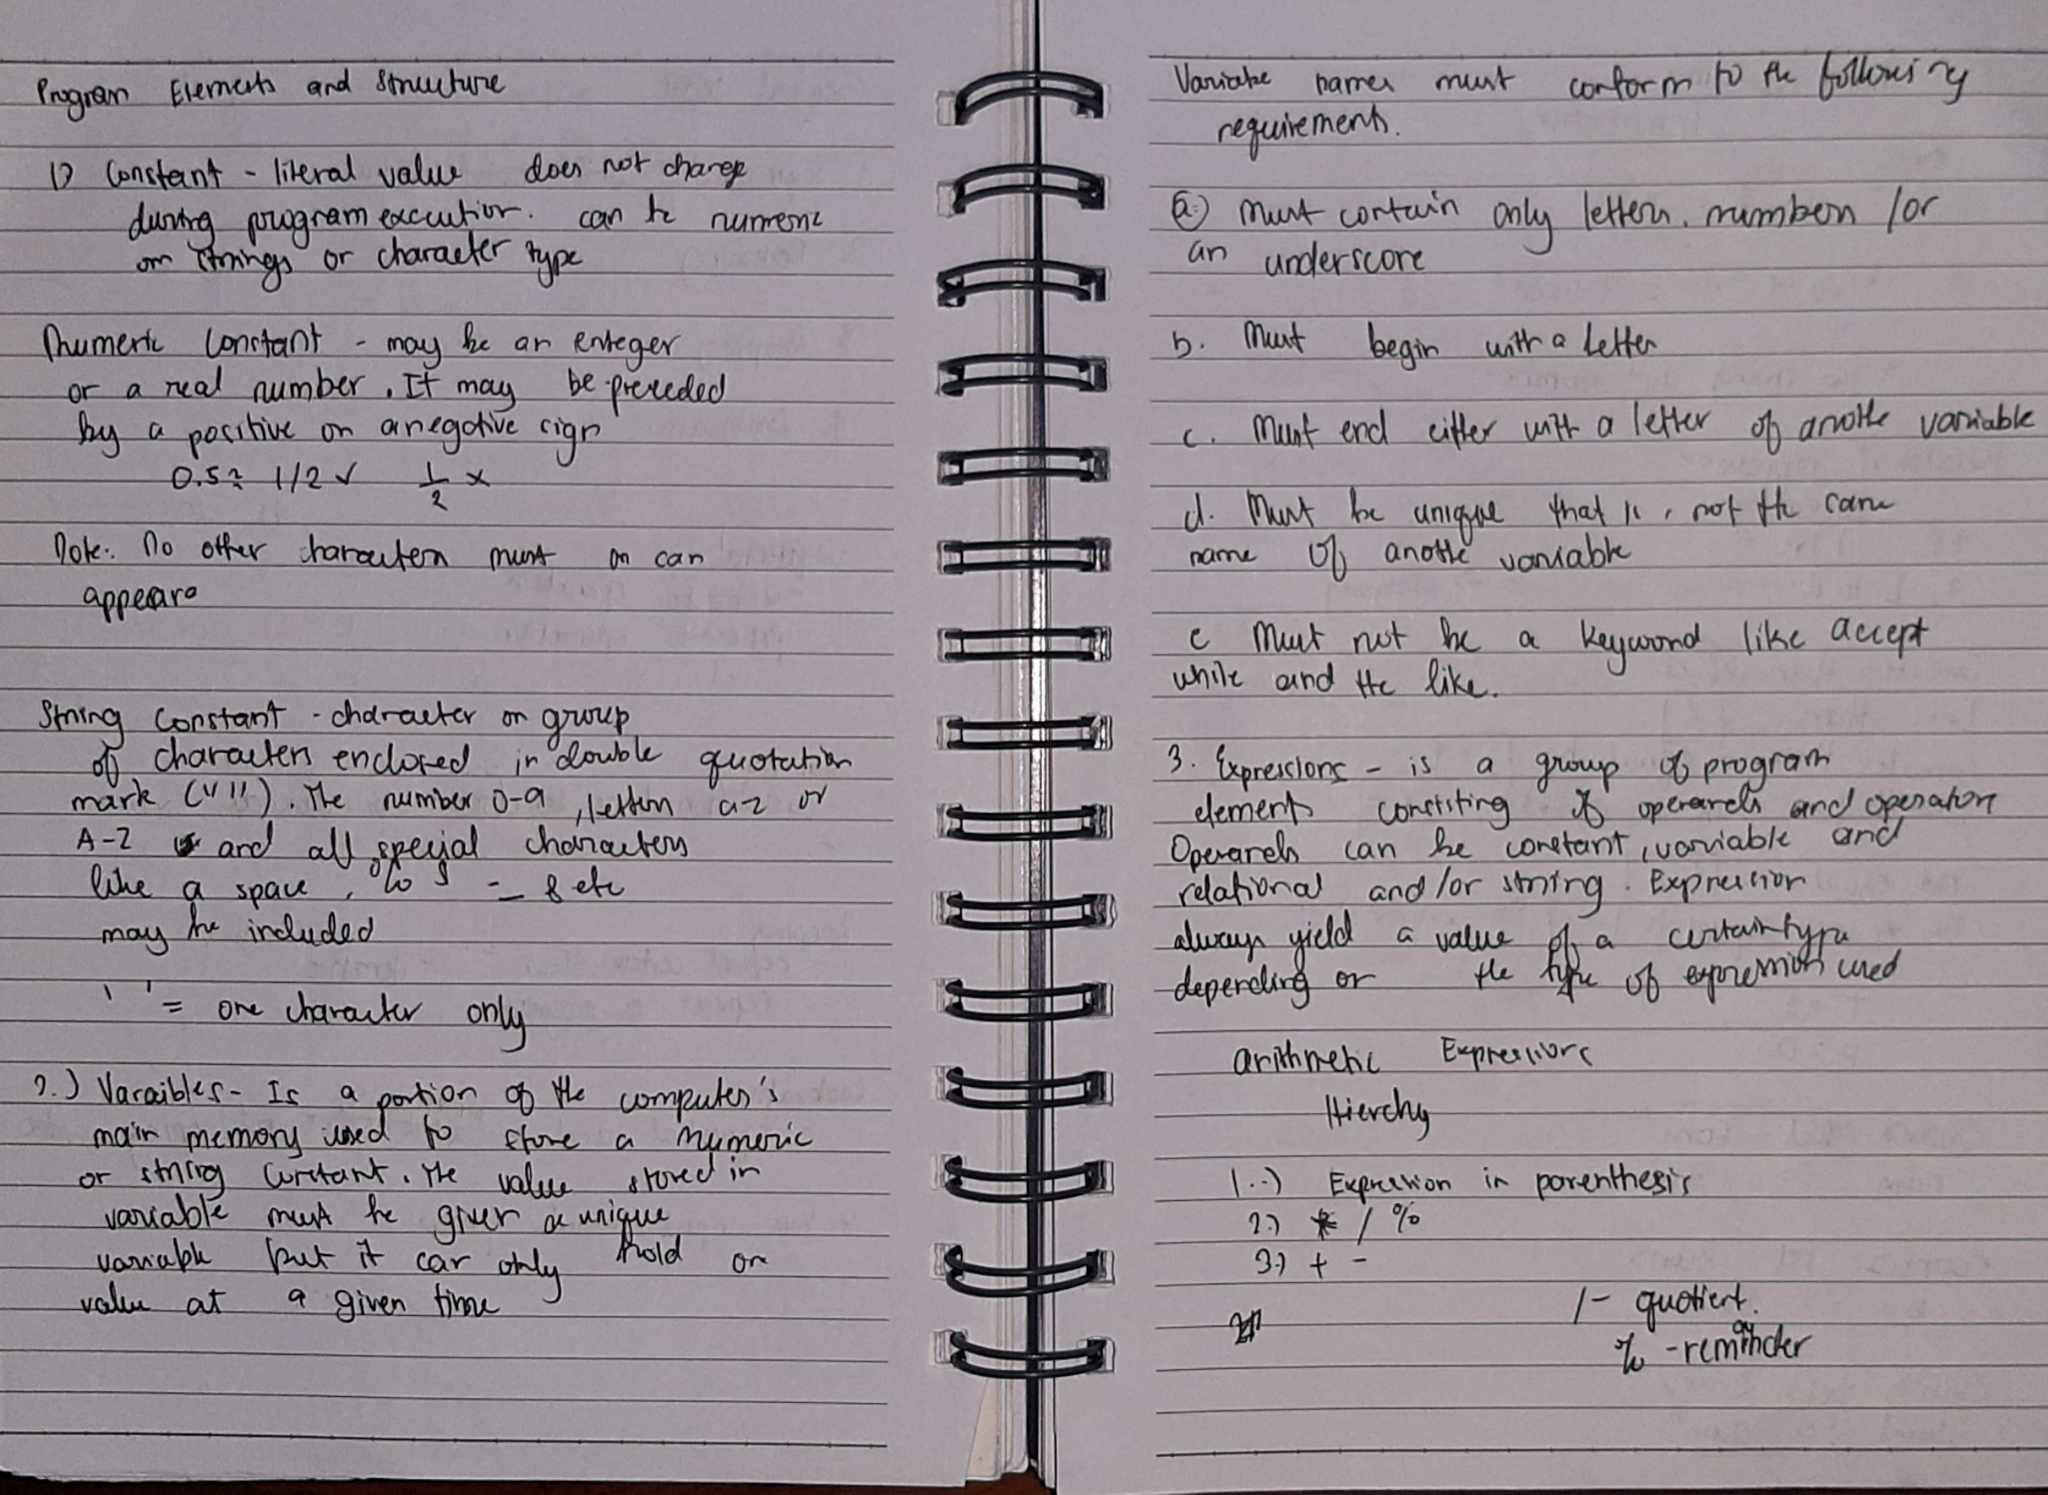 Program Elements and Structure
1) Constant - literal value does not change
during program execution. can be numeric
or strings or character type
Numeric Constant - may be an enteger
or a real number. It may be preceded
by a positive or a negative sign
0.5 = 1/2 ✓ 1/2 x
Note: No other characters must or can
appeare
String Constant - character or group
of characters enclosed in double quotation
mark (" "). The number 0-9, letters a-z or
A-Z and all special characters
like a space, % $ - _ & etc
may be included
' ' = one character only
2.) Varaibles - Is a portion of the computer's
main memory used to store a numeric
or string constant. The value stored in
variable must be given a unique
variable but it can only hold on
value at a given time
Variable names must conform to the following
requirements.
a.) Must contain only letters, numbers /or
an underscore
b. Must begin with a letter
c. Must end either with a letter of another variable
d. Must be unique that is, not the same
name of another variable
e Must not be a keyword like accept
while and the like.
3. Expressions - is a group of program
elements consisting of operands and operators
Operands can be constant, variable and
relational and/or string. Expression
always yield a value of a certain type
depending on the type of expression used
Arithmetic Expressions
Hierchy
1.) Expression in parenthesis
2.) * / %
3.) + -
/ - quotient.
% - remainder